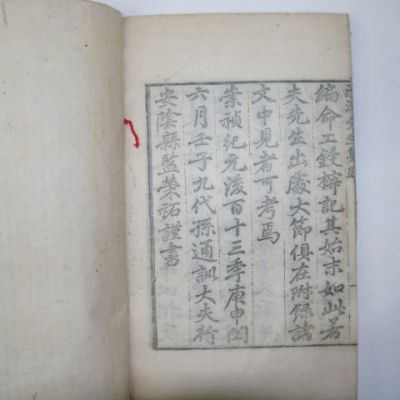 編命工鋟梓記其始末如此若
夫先生出處大節俱在附錄諸
文中見者可考焉
崇禎紀元後百十三季庚申閏
六月壬子九代孫通訓大夫行
安陰縣監榮祏謹書